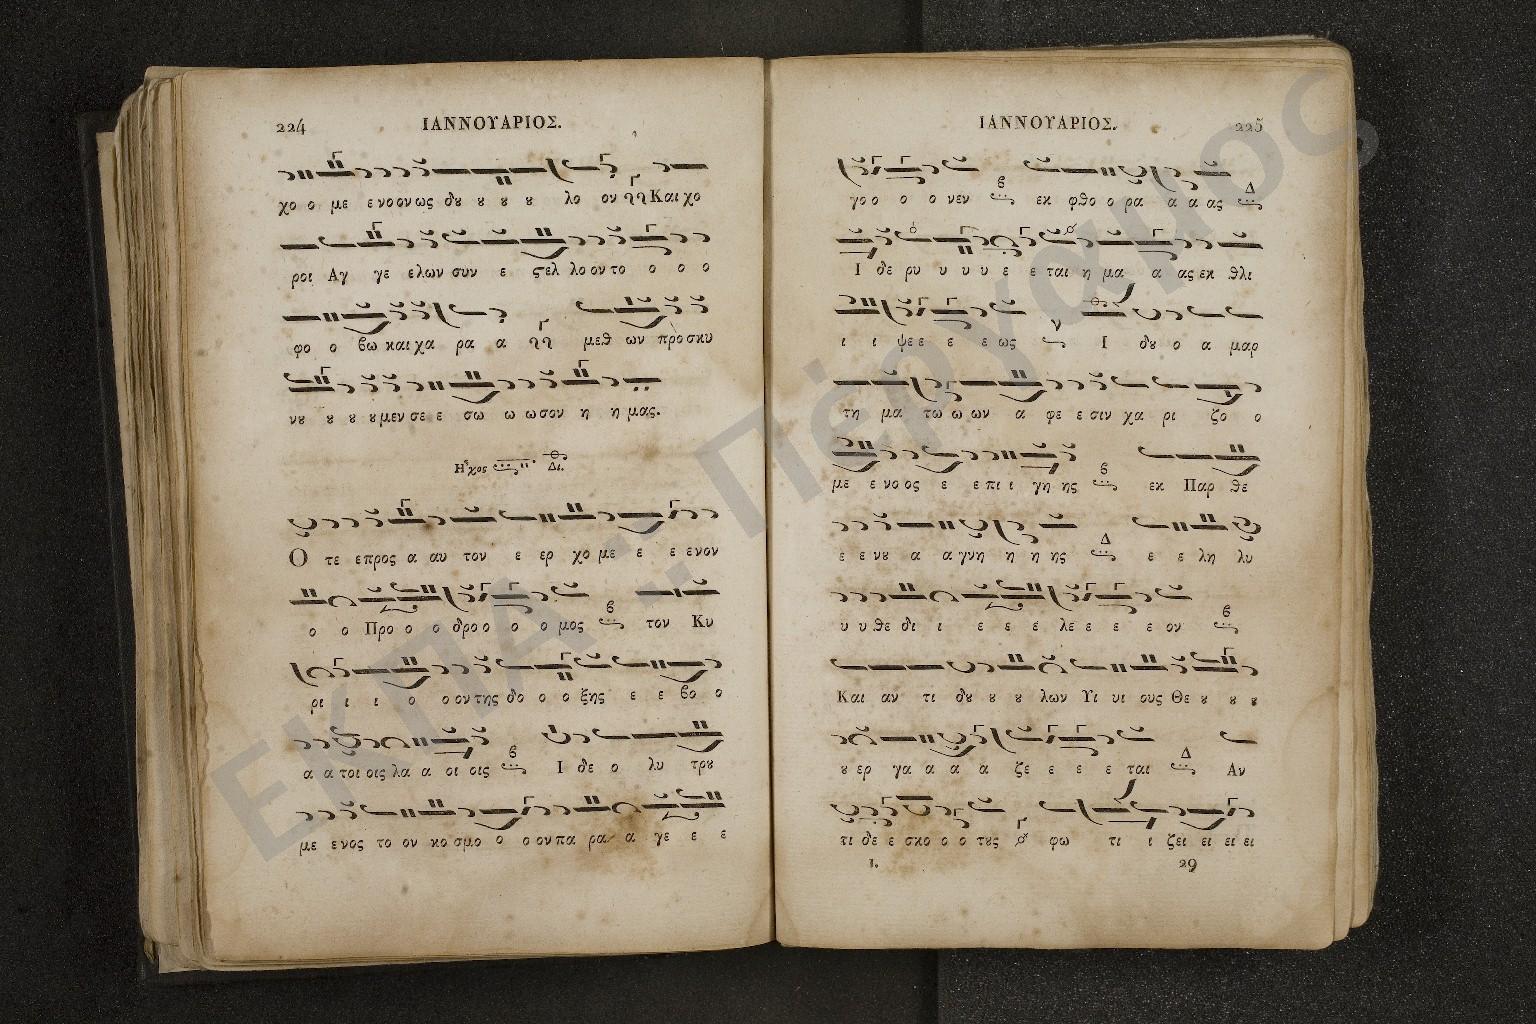 224 ΙΑΝΝΟΥΑΡΙΟΣ.
χο ο με ενοονως ȣδ ȣ ȣ ȣ λο ον Και χο
ροι Αγ γε ελων συν ε ϛελ λο ον το ο ο ο
φο ο βω και χα ρα α μεθ ων προσκυ
νȣ ȣ ȣ ȣμεν σε ε σω ω ωσον η η μας.
Ηχος Δι.
Ο τε επρος α αυ τον ε ερ χο με ε ε ενον
ο ο Προ ο ο δρο ο ο ο μος τον Κυ
ρι ι ι ο ο ον της δο ο ο ξης ε ε βο ο
α α τοι οις λα α οι οις Ι δε ο λυ τρȣ
με ενος το ον κο σμο ο ο ον πα ρα α γε ε ε
ΙΑΝΝΟΥΑΡΙΟΣ. 225
γο ο ο ο νεν εκ φθο ο ρα α α ας
Ι δε ρυ υ υ υ ε ε ται η μα α ας εκ θλι
ι ι ψε ε ε ε ως Ι δȣ ο α μαρ
τη μα τω ω ων α φε ε σιν χα ρι ζο ο
με ενο ος ε επι ι γη ης εκ Παρ θε
ε ε νȣ α α γνη η η ης ε ε λη λυ
υ υ θε δι ι ε ε ε λε ε ε ε ον
Και αν τι δȣ ȣ ȣ λων Υι υι ους Θε ȣ ȣ ȣ
ȣ ερ γα α α α ζε ε ε ε ται Αν
τι δε ε σκο ο ο τȣς φω τι ι ζει ει ει ει
1. 29
ΕΚΠΑ :: Πέργαμος